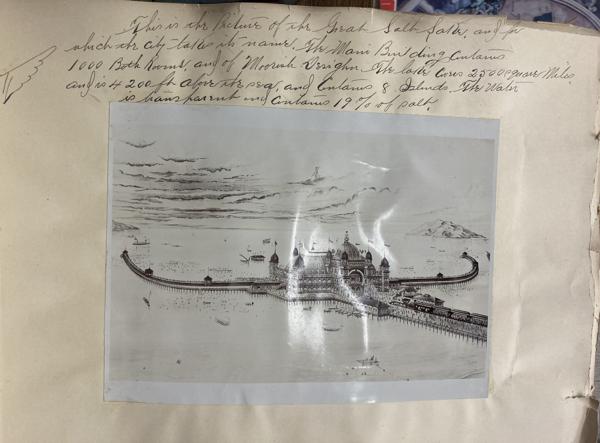 This is the Picture of the Great Salt Lake, and for
which the city takes its name. The Main Building Contains
1000 Bath Rooms, and of Moorish Design. The lake Covers 2500 square Miles
and is 4200 ft above the sea, and Contains 8 Islands. The Water
is transparent and Contains 19% of salt.